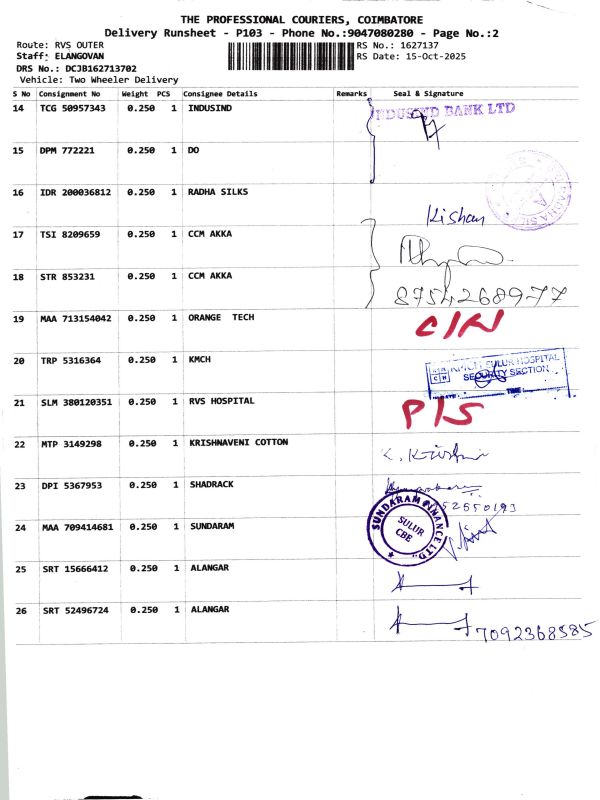 THE PROFESSIONAL COURIERS, COIMBATORE
Delivery Runsheet - P103 - Phone No.:9047080280 - Page No.:2
Route: RVS OUTER RS No.: 1627137
Staff: ELANGOVAN RS Date: 15-Oct-2025
DRS No.: DCJB162713702
Vehicle: Two Wheeler Delivery
S No Consignment No Weight PCS Consignee Details Remarks Seal & Signature
14 TCG 50957343 0.250 1 INDUSIND INDUSIND BANK LTD
15 DPM 772221 0.250 1 DO
16 IDR 200036812 0.250 1 RADHA SILKS Kishan
17 TSI 8209659 0.250 1 CCM AKKA
18 STR 853231 0.250 1 CCM AKKA 8754268977
19 MAA 713154042 0.250 1 ORANGE TECH C/N
20 TRP 5316364 0.250 1 KMCH KMCH SULUR HOSPITAL
SECURITY SECTION
DATE: TIME:
21 SLM 380120351 0.250 1 RVS HOSPITAL P/S
22 MTP 3149298 0.250 1 KRISHNAVENI COTTON
23 DPI 5367953 0.250 1 SHADRACK
24 MAA 709414681 0.250 1 SUNDARAM SUNDARAM FINANCE LTD.
SULUR
CBE
25 SRT 15666412 0.250 1 ALANGAR
26 SRT 52496724 0.250 1 ALANGAR 7092368585